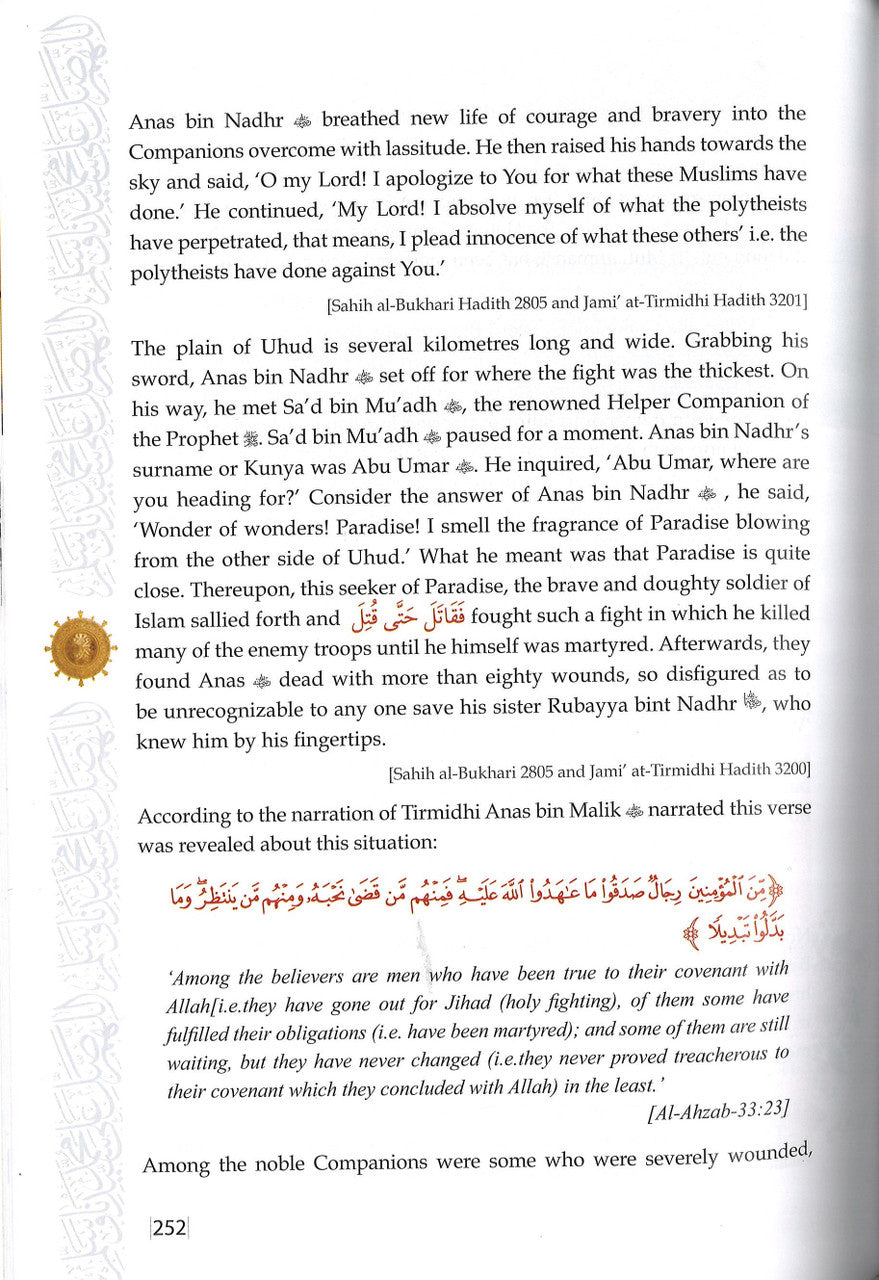 Anas bin Nadhr breathed new life of courage and bravery into the
Companions overcome with lassitude. He then raised his hands towards the
sky and said, ‘O my Lord! I apologize to You for what these Muslims have
done.’ He continued, ‘My Lord! I absolve myself of what the polytheists
have perpetrated, that means, I plead innocence of what these others’ i.e. the
polytheists have done against You.’
[Sahih al-Bukhari Hadith 2805 and Jami’ at-Tirmidhi Hadith 3201]
The plain of Uhud is several kilometres long and wide. Grabbing his
sword, Anas bin Nadhr set off for where the fight was the thickest. On
his way, he met Sa’d bin Mu’adh , the renowned Helper Companion of
the Prophet ﷺ. Sa’d bin Mu’adh paused for a moment. Anas bin Nadhr’s
surname or Kunya was Abu Umar . He inquired, ‘Abu Umar, where are
you heading for?’ Consider the answer of Anas bin Nadhr , he said,
‘Wonder of wonders! Paradise! I smell the fragrance of Paradise blowing
from the other side of Uhud.’ What he meant was that Paradise is quite
close. Thereupon, this seeker of Paradise, the brave and doughty soldier of
Islam sallied forth and فَقَاتَلَ حَتَّى قُتِلَ fought such a fight in which he killed
many of the enemy troops until he himself was martyred. Afterwards, they
found Anas dead with more than eighty wounds, so disfigured as to
be unrecognizable to any one save his sister Rubayya bint Nadhr , who
knew him by his fingertips.
[Sahih al-Bukhari 2805 and Jami’ at-Tirmidhi Hadith 3200]
According to the narration of Tirmidhi Anas bin Malik narrated this verse
was revealed about this situation:
﴿مِّنَ ٱلْمُؤْمِنِينَ رِجَالٌ صَدَقُوا۟ مَا عَـٰهَدُوا۟ ٱللَّهَ عَلَيْهِ ۖ فَمِنْهُم مَّن قَضَىٰ نَحْبَهُۥ وَمِنْهُم مَّن يَنتَظِرُ ۖ وَمَا
بَدَّلُوا۟ تَبْدِيلًا ﴾
‘Among the believers are men who have been true to their covenant with
Allah[i.e.they have gone out for Jihad (holy fighting), of them some have
fulfilled their obligations (i.e. have been martyred); and some of them are still
waiting, but they have never changed (i.e.they never proved treacherous to
their covenant which they concluded with Allah) in the least.’
[Al-Ahzab-33:23]
Among the noble Companions were some who were severely wounded,
|252|